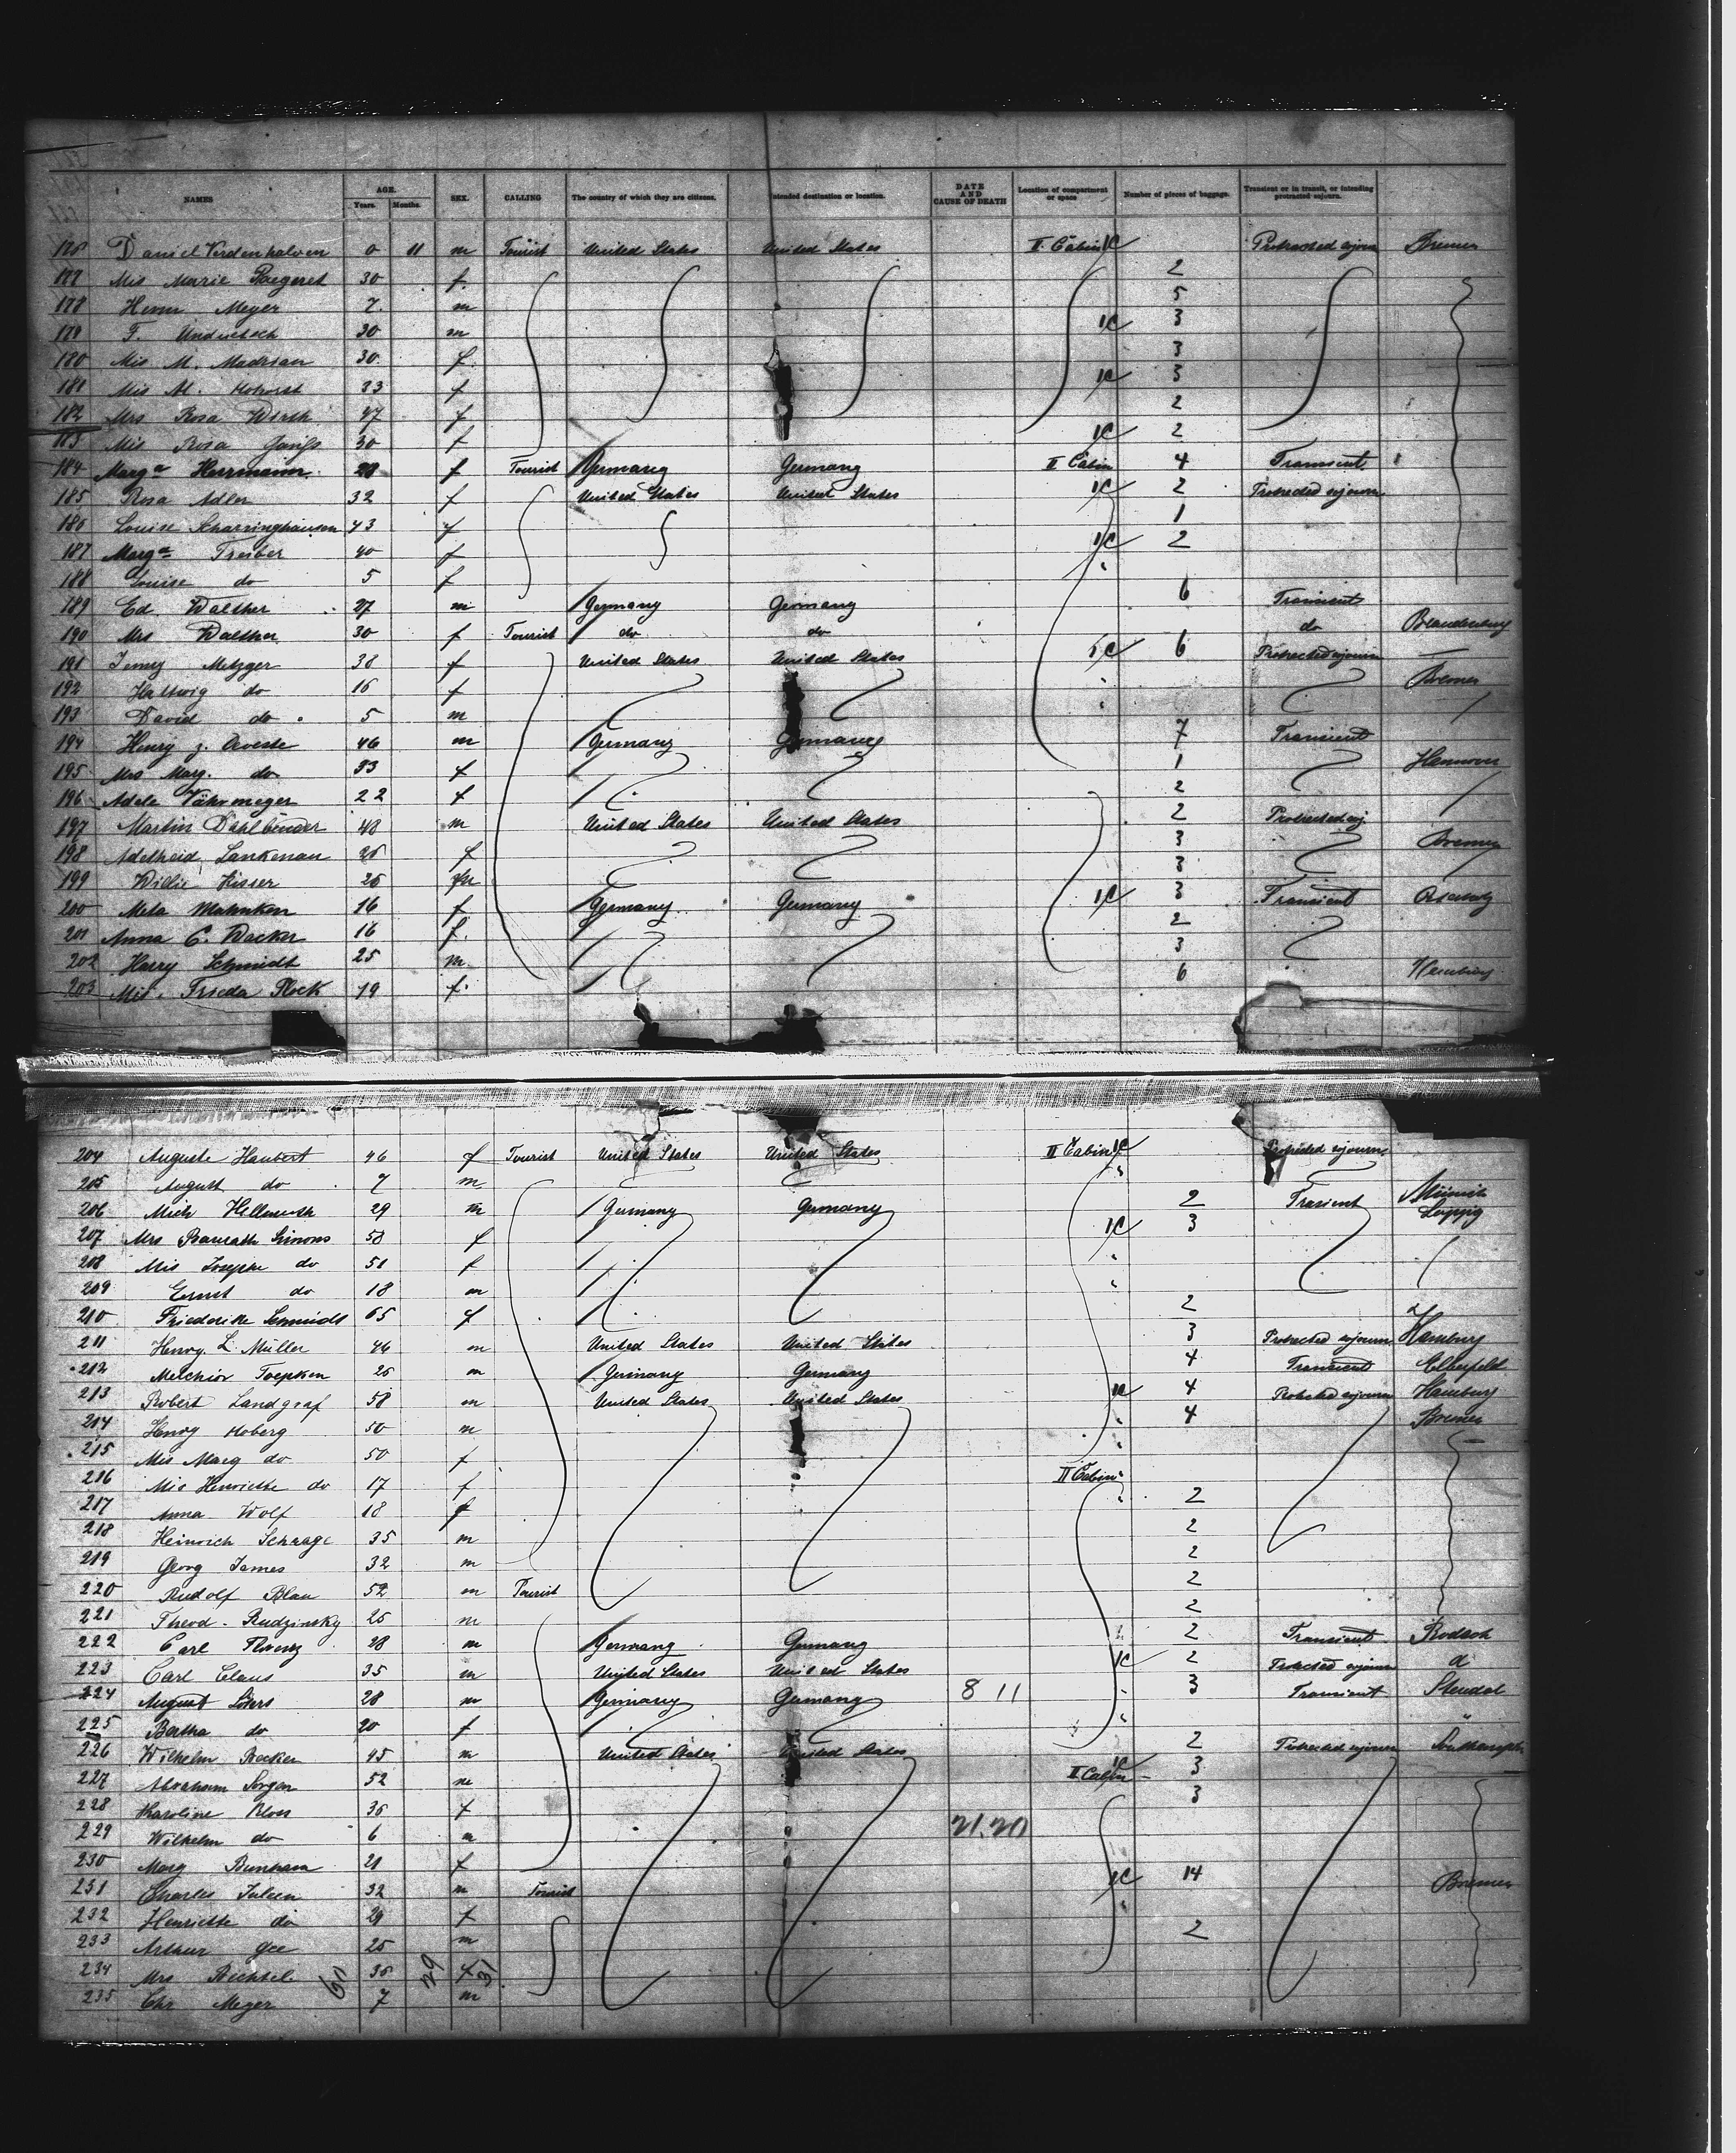 NAMES AGE. Years. Months. SEX. CALLING The country of which they are citizens. Intended destination or location. DATE AND CAUSE OF DEATH Location of compartment or space Number of pieces of baggage. Transient or in transit, or intending protracted sojourn.
176 Daniel 0 11 m Tourist United States United States II. Cabin Protracted sojourn Bremen
177 Mis Marie 30 f. 2
178 Herm Meyer 7. m 5
179 F. 30 m 3
180 Mis M. 30 f. 3
181 Mis M. 33 f 3
182 Mrs Rosa Wirth 47 f 2
183 Mis Rosa 30 f 2
184 Marga Herrmann 28 f Tourist Germany Germany II Cabin 4 Transient
185 Rosa Adler 32 f United States United States 2 Protracted sojourn
186 Louise Scharringhausen 43 f 1
187 Marga Treiber 40 f 2
188 Louise do 5 f
189 Ed Walther 27 m Germany Germany 6 Transient
190 Mrs Walther 30 f Tourist do do do Brandenburg
191 Jenny Metzger 38 f United States United States 6 Protracted sojourn
192 Hattwig do 16 f Bremen
193 David do 5 m
194 Henry z. 46 m Germany Germany 7 Transient
195 Mrs Marg. do 33 f 1 Hannover
196 Adele 22 f 2
197 Martin 48 m United States United States 2 Protracted soj
198 Adelheid Lankenau 26 f 3 Bremen
199 Willie Risser 26 m 3
200 Meta Mahnken 16 f Germany Germany 3 Transient
201 Anna C. Wacker 16 f. 2
202 Harry Schmidt 25 m 3
203 Mis. Frieda Plock 19 f. 6 Hamburg
204 Auguste Haubert 46 f Tourist United States United States II Cabin Protracted sojourn
205 August do 7 m
206 Mich Hellmuth 29 m Germany Germany 2 Transient Münich
207 Mrs Baurath Simons 58 f 3 Leipzig
208 Mis Josephe do 51 f
209 Ernst do 18 m
210 Friederike Schmidt 65 f 2
211 Henry. L. Müller 46 m United States United States 3 Protracted sojourn Hamburg
212 Melchior Toepken 26 m Germany Germany 4 Transient Elberfeld
213 Robert Landgraf 58 m United States United States 4 Protracted sojourn Hamburg
214 Henry Hoberg 50 m 4 Bremen
215 Mis Marg do 50 f
216 Mis Henriette do 17 f II Cabin
217 Anna Wolf 18 f 2
218 Heinrich Schaage 35 m 2
219 Georg James 32 m 2
220 Rudolf Blau 52 m Tourist 2
221 Theod. Rudzinsky 26 m 2
222 Carl 28 m Germany Germany 2 Transient Rodach
223 Carl Claus 35 m United States United States 2 Protracted sojourn
224 August 28 m Germany Germany 8 11 3 Transient Stendal
225 Bertha do 20 f "
226 Wilhelm Becker 45 m United States United States 2 Protracted sojourn Southampton
227 Abraham Sorgen 52 m II Cabin 3
228 Karoline Kloss 36 f 3
229 Wilhelm do 6 m 21.20
230 Marg Bunham 21 f
231 Charles Julien 32 m Tourist 14 Bremen
232 Henriette do 29 f
233 Arthur Gee 26 m 2
234 Mrs Bechtel 36 f
235 Chr Meyer 7 m
60 29 31